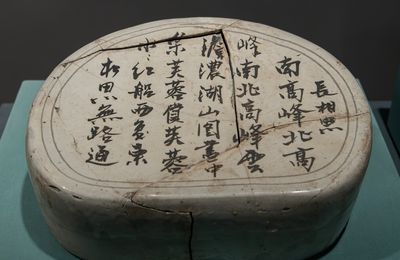 長相思
南高峰北高
峰南北高峰雲
澹濃湖山圖畫中
采芙蓉賞芙蓉
小〻紅船西復東
相思無路通